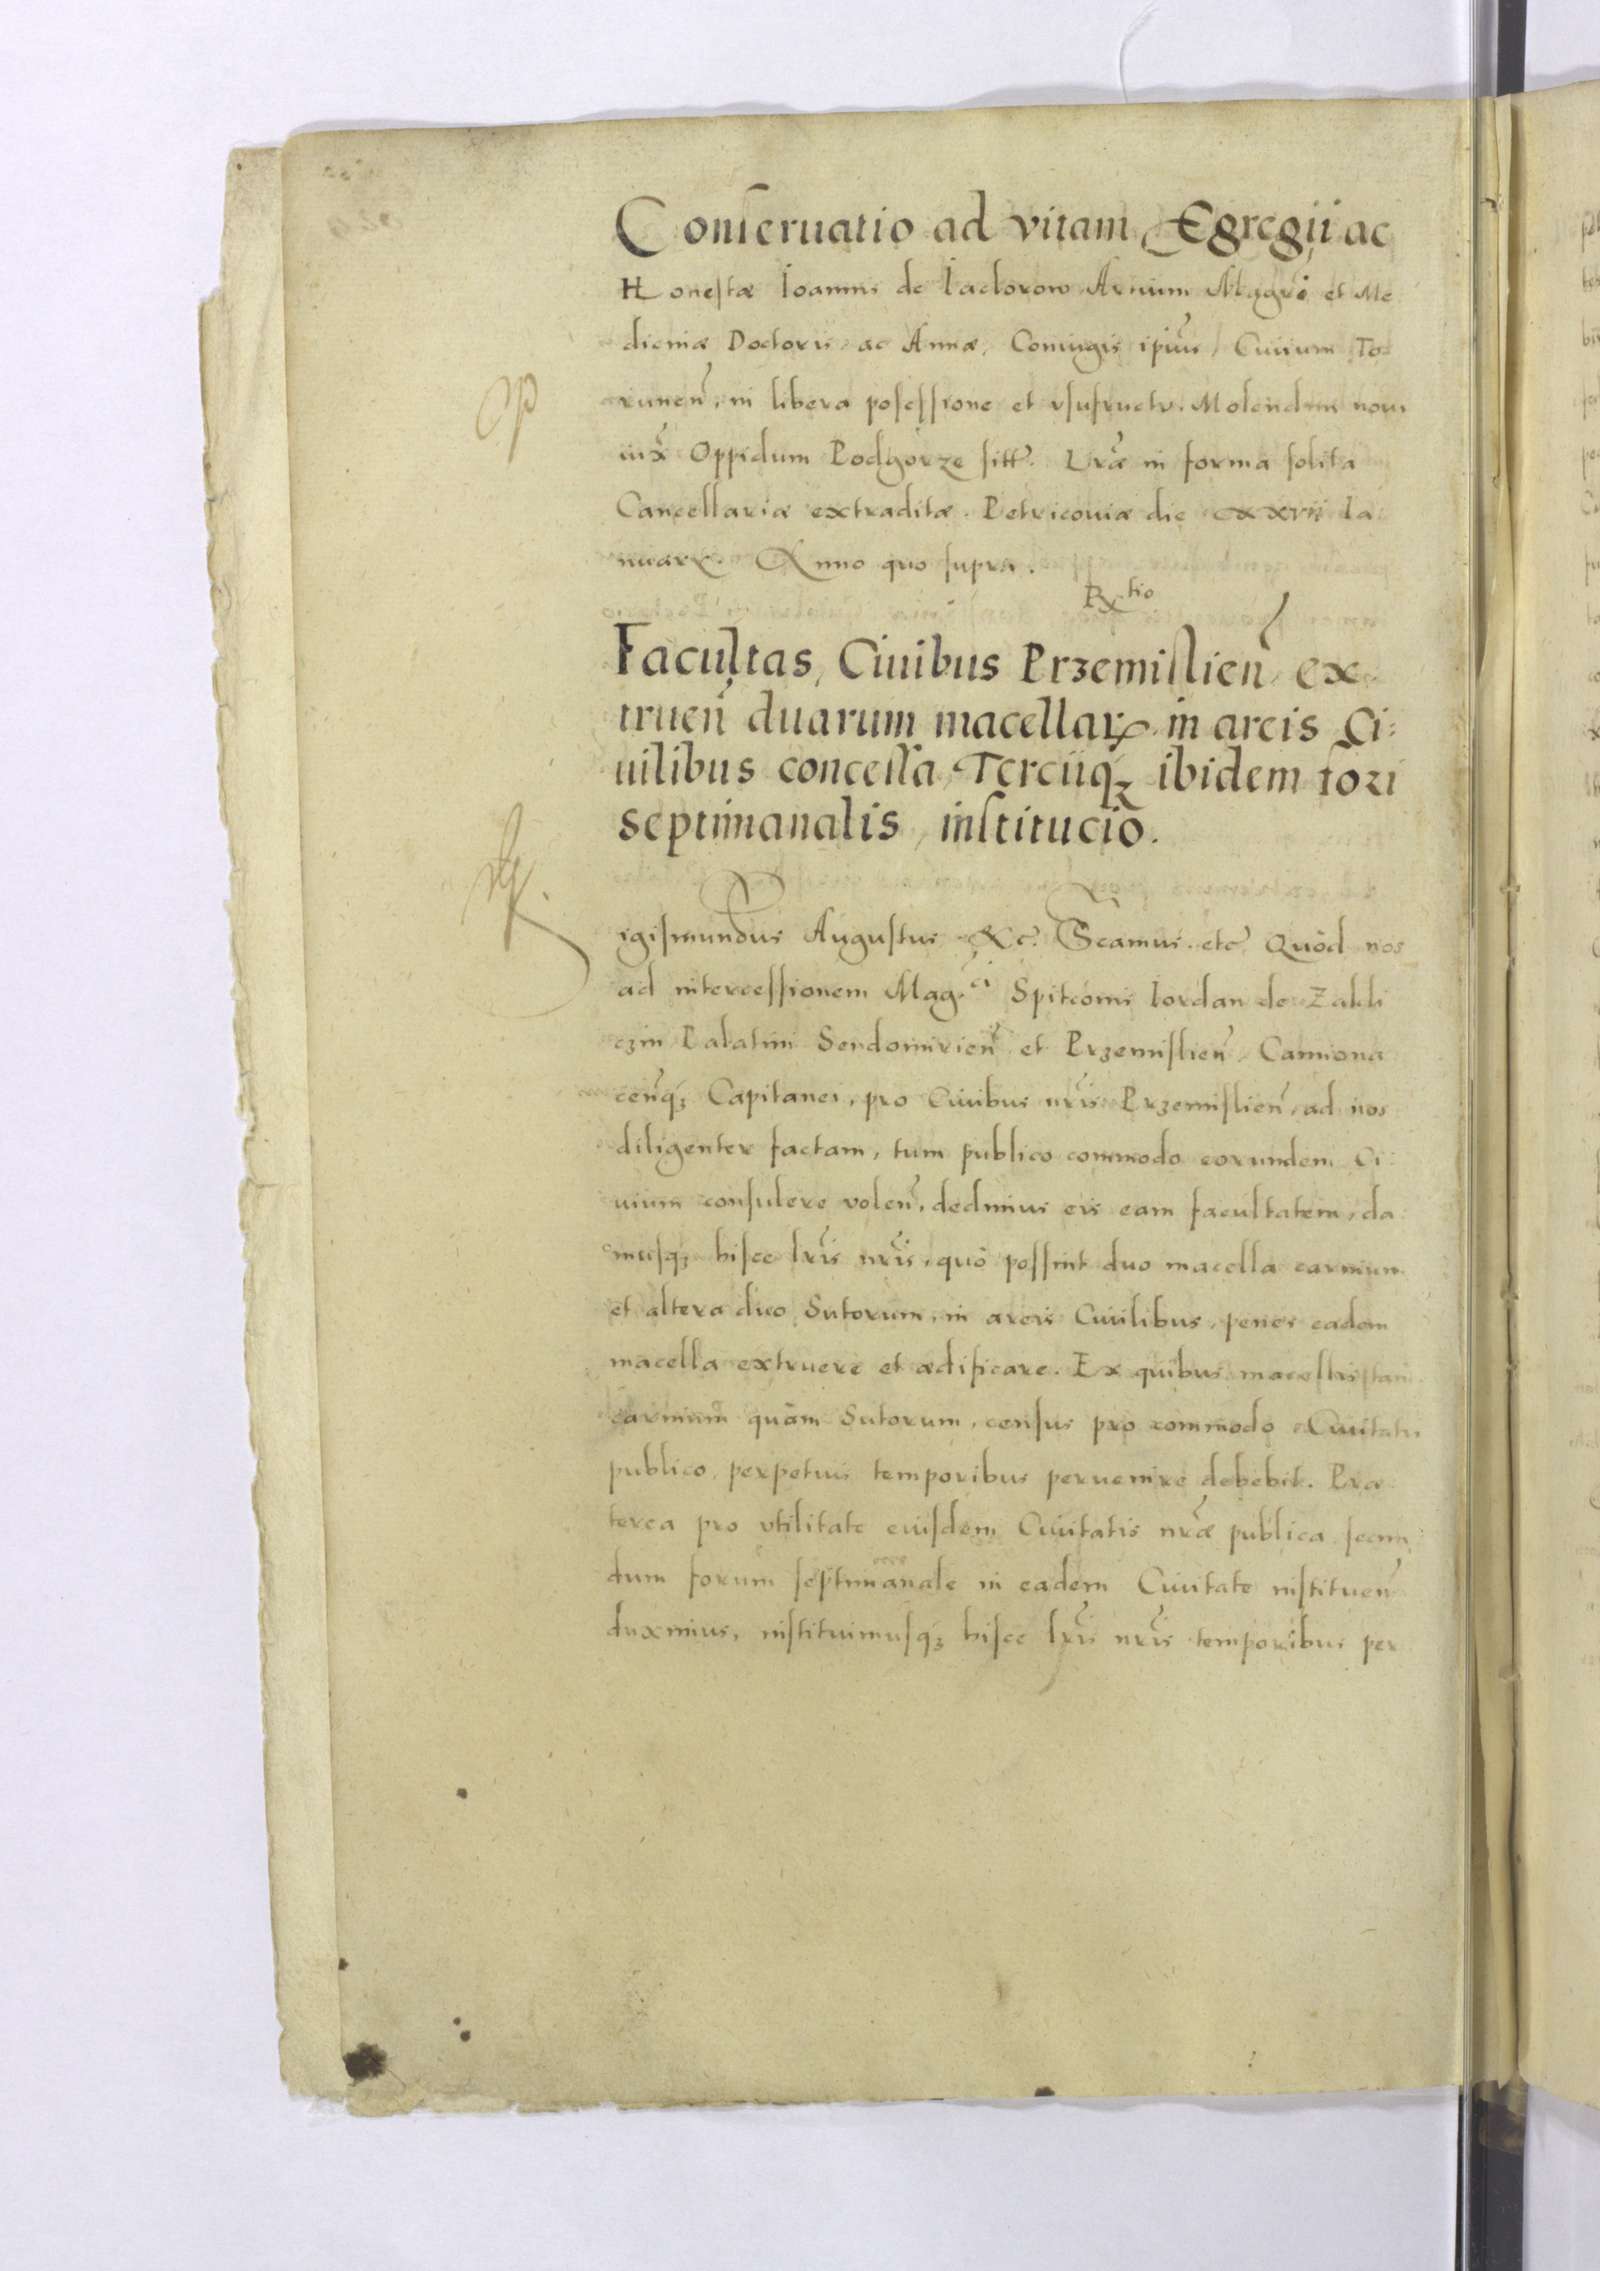 Conseruatio ad vitam Egregii ac
Honestæ Ioannis de Iactorow Artium Magrī et Me
dicinæ Doctoris, ac Annæ, Coniugis ipiūs, Ciuium To
runeñ, in libera posessione et vsufructu. Molendini noui
iux̄ Oppidum Podgorze sitt. Lr̃æ in forma solita
Cancellariæ extraditæ. Petricouiæ die xxvii Ia
nuarȝ. Anno quo supra.
Rx tio
Facultas, Ciuibus Przemislieñ ex
trueñ duarum macellarꝝ in areis Ci:
uilibus concessa, Terciiqꝫ ibidem fori
septimanalis, institucio.
igismundus Augustus &c. Scamus. etc Quòd nos
ad intercessionem Mag.ci Spitcomi Iordan de Zakli
czin Palatini Sendomirieñ et Przemislieñ, Camiona
ceñqꝫ Capitanei, pro Ciuibus nr̃is Przemislieñ, ad nos
diligenter factam, tum publico commodo eorundem Ci
uium consulere voleñ, dedimus eis eam facultatem, da
musqꝫ hisce lr̃is nr̃is, quò possint duo macella carnium
et altera duo Sutorum, in areis Ciuilibus, penes eadem
macella extruere et ædificare. Ex quibus macellis tam
carnium quàm Sutorum, census pro commodo Ciuitatis
publico, perpetuis temporibus peruenire debebit. Præ
terea pro vtilitate eiusdem Ciuitatis nr̃æ publica secun
dum forum septimanale in eadem Ciuitate instituen
duximus, instituimusqꝫ hisce lr̃is nr̃is temporibus per